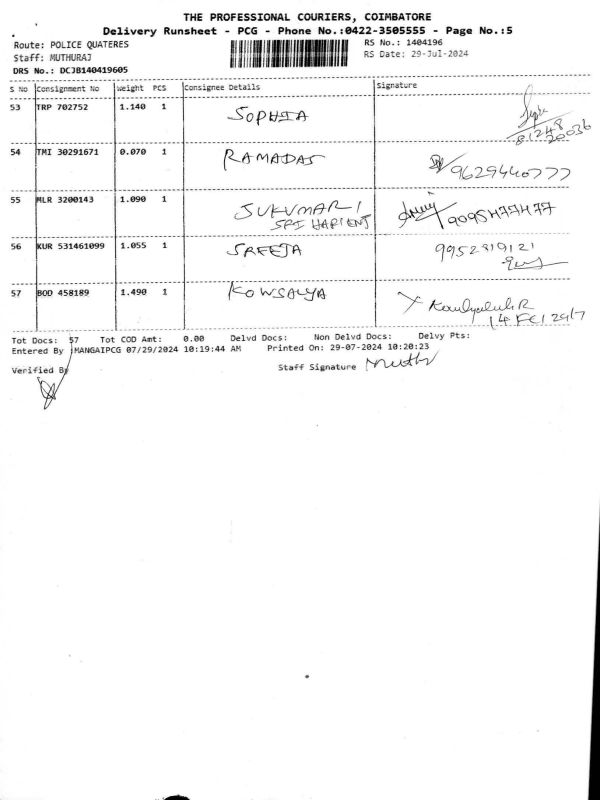 THE PROFESSIONAL COURIERS, COIMBATORE
Delivery Runsheet - PCG - Phone No.:0422-3505555 - Page No.:5
Route: POLICE QUATERES
RS No.: 1404196
Staff: MUTHURAJ
RS Date: 29-Jul-2024
DRS No.: DCJB140419605
S No Consignment No Weight PCS Consignee Details Signature
53 TRP 702752 1.140 1 SOPHIA
81248
20036
54 TMI 30291671 0.070 1 RAMADAS 9629440777
55 MLR 3200143 1.090 1 SUKUMARI 9095477477
SRI HARIENT
56 KUR 531461099 1.055 1 SREEJA 9952819121
57 BOD 458189 1.490 1 KOWSALYA
Tot Docs: 57 Tot COD Amt: 0.00 Delvd Docs: Non Delvd Docs: Delvy Pts:
Entered By :MANGAIPCG 07/29/2024 10:19:44 AM Printed On: 29-07-2024 10:20:23
Verified By Staff Signature Muthu